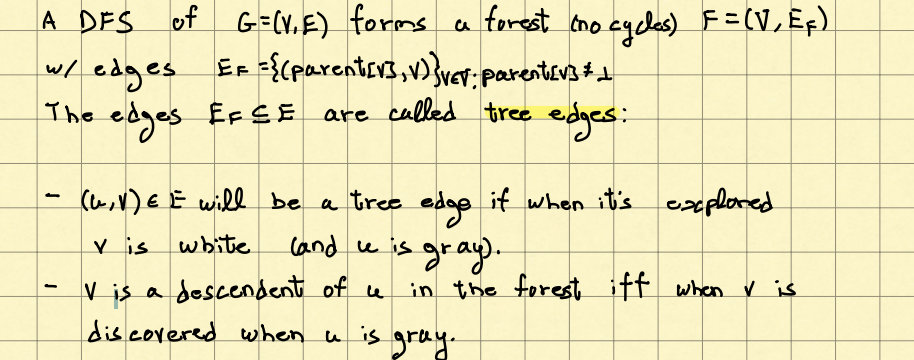 A DFS of G=(V,E) forms a forest (no cycles) F=(V,E_F)
w/ edges E_F={(parent[v],v)}v∈V:parent[v]≠⊥
The edges E_F ⊆ E are called tree edges:
- (u,v) ∈ E will be a tree edge if when it's explored
v is white (and u is gray).
- v is a descendent of u in the forest iff when v is
discovered when u is gray.